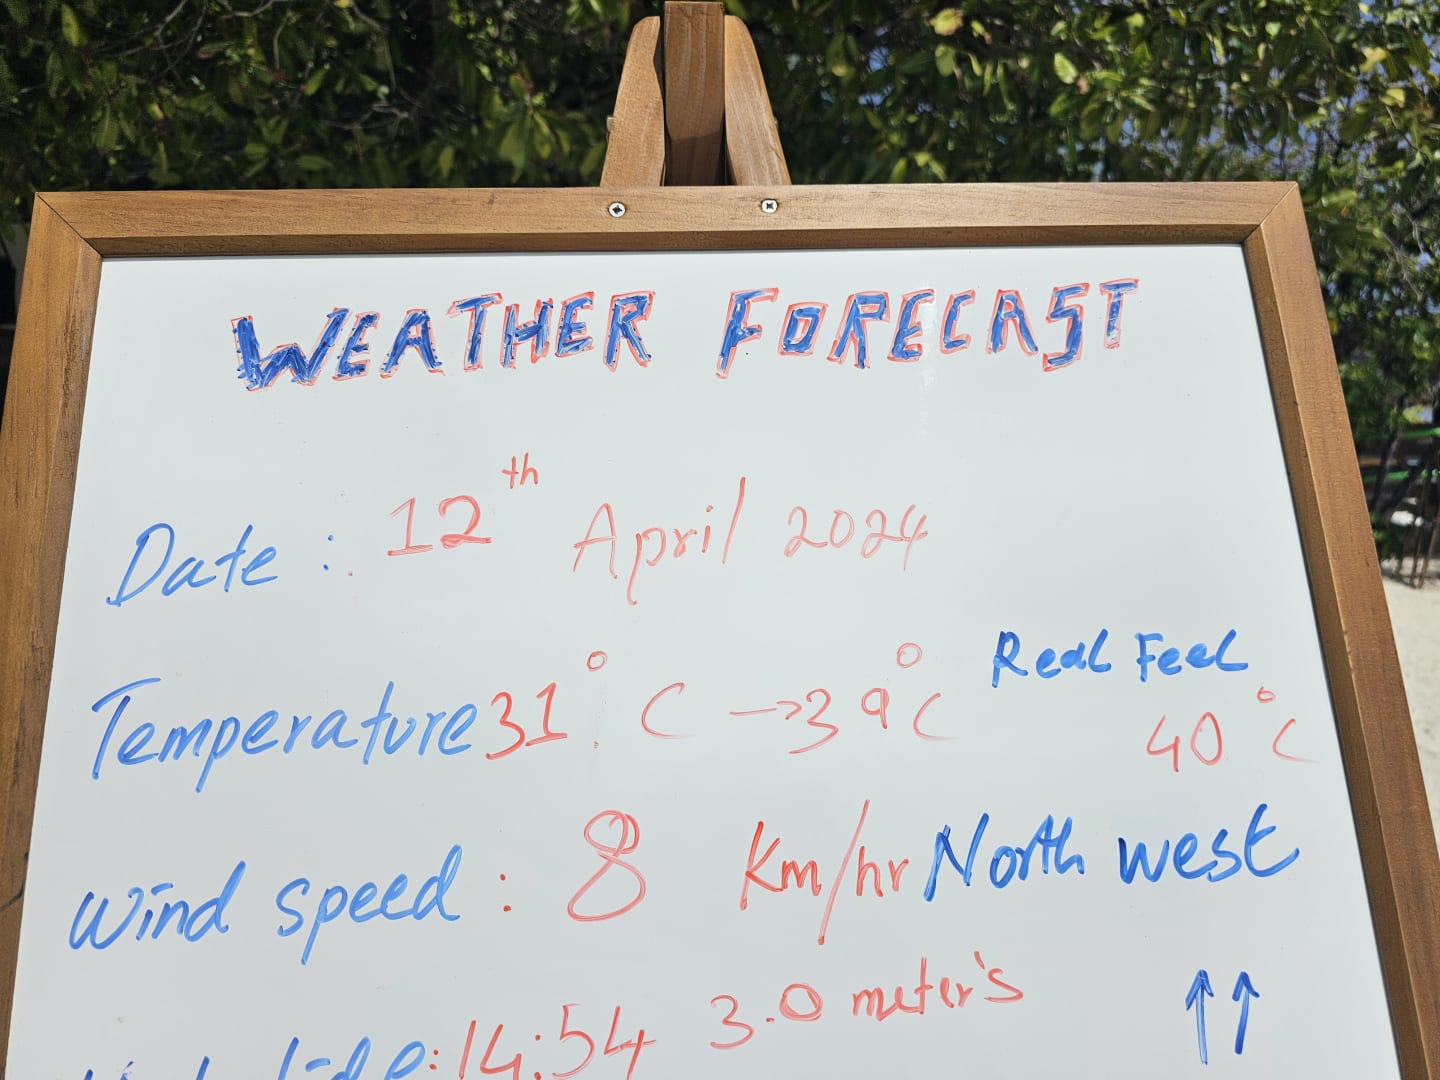 WEATHER FORECAST
Date : 12th April 2024
Temperature 31°C → 39°C Real Feel 40°C
Wind speed : 8 Km/hr North west
14:54 3.0 meter's ↑↑